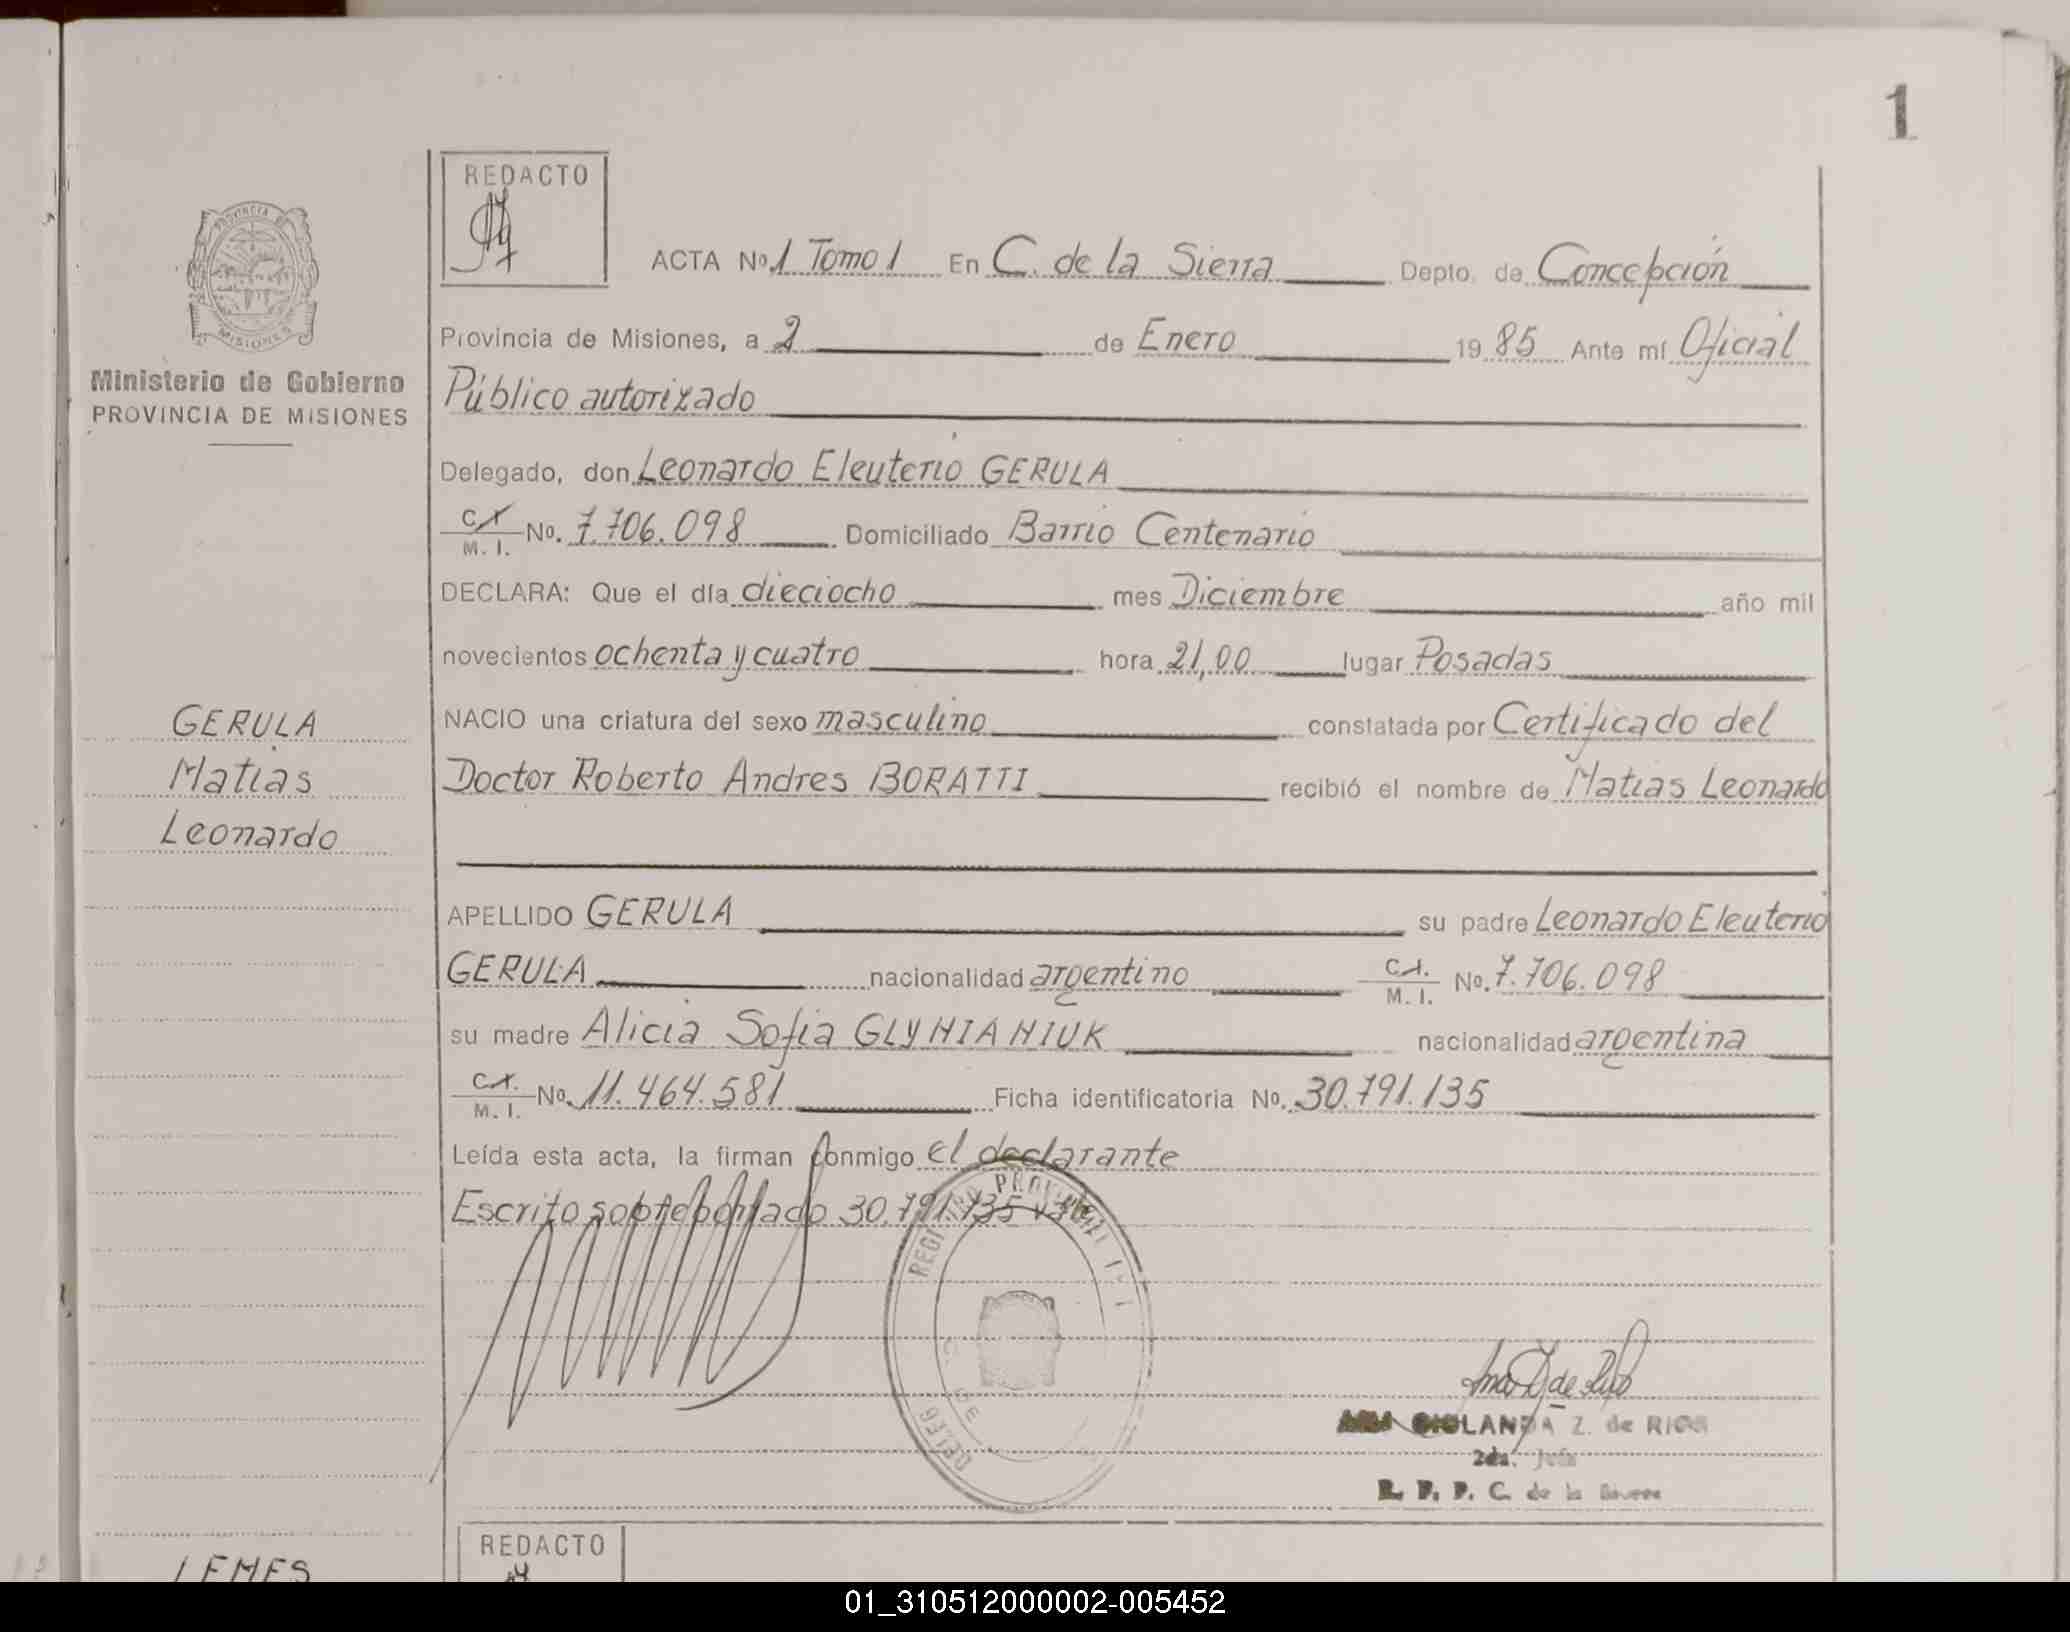 1
REDACTO
PROVINCIA DE
MISIONES
Ministerio de Gobierno
PROVINCIA DE MISIONES
ACTA No. 1 Tomo 1 En C. de la Sierra Depto. de Concepción
Provincia de Misiones, a 2 de Enero 1985 Ante mí Oficial
Público autorizado
Delegado, don Leonardo Eleuterio GERULA
C.I. M. I. No. 7.706.098 Domiciliado Barrio Centenario
DECLARA: Que el día dieciocho mes Diciembre año mil
novecientos ochenta y cuatro hora 21,00 lugar Posadas
GERULA
Matias
Leonardo
NACIO una criatura del sexo masculino constatada por Certificado del
Doctor Roberto Andres BORATTI recibió el nombre de Matias Leonardo
APELLIDO GERULA su padre Leonardo Eleuterio
GERULA nacionalidad argentino C.I. M. I. No. 7.706.098
su madre Alicia Sofia GLYNIANIUK nacionalidad argentina
C.I. M. I. No. 11.464.581 Ficha identificatoria No. 30.791.135
Leída esta acta, la firman conmigo el declarante
Escrito sobreborrado 30.791.135 v
REGISTRO PROVINCIAL
DELEG
C. DE
Z. de RIOS
2da. Jefe
R. P. P. C. de la Sierra
REDACTO
LEMES
01_310512000002-005452